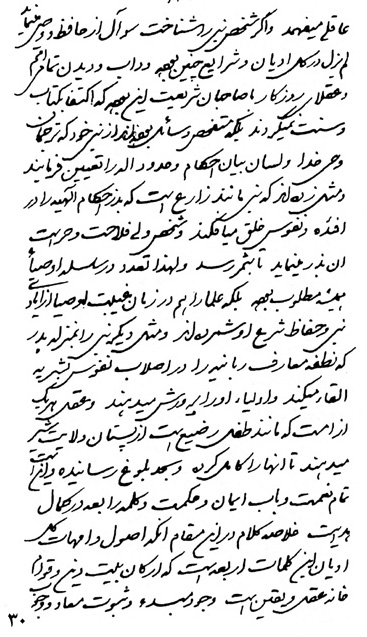 عاقل میفهمد و اگر شخص نبی را شناخت سوآل از حافظ و وصی مینماید
لم یزل در کل ادیان و شرایع چنین بوده و داب و دیدن تمام امم
و عقلای روزگار با صاحبان شریعت این بوده که اکتفا بکتاب
و سنت نمیکردند بلکه متفحص و سائل بوده‌اند از نبی خود که ترجمان
وحی خدا و لسان بیان احکام و حدود اله را تعیین فرمایند
و مثل زده‌اند که نبی مانند زارع است که بذر احکام الهیه را در
افئده و نفوس خلق میافکند و شخص ولی فلاحت و حراست
ان بذر مینماید تا بثمر رسد و لهذا تعدد در سلسله اوصیاء
همیشه مطلوب بوده بلکه علما را هم در زمان غیبت اوصیا از ایادی
نبی و حفاظ شرع او شمرده‌اند و مثل دیگر نبی را بمنزله پدر
که نطفه معارف ربانیه را در اصلاب نفوس بشریه
القا میکند و اولیاء او را پرورش میدهند و عقل هر یک
از امت که مانند طفل رضیع است از پستان ولایت شیر
میدهند تا انها را کامل کرده و بحد بلوغ رسانیده و این است
تمام نعمت و باب ایمان و حکمت و کلمه رابعه در کمال
هدایت خلاصه کلام در این مقام انکه اصول و امهات کل
ادیان این کلمات اربعه است که ارکان بیت دین و قوائم
خانه عقل و یقین است وجود مبدء و ثبوت معاد و وجود
۳۰